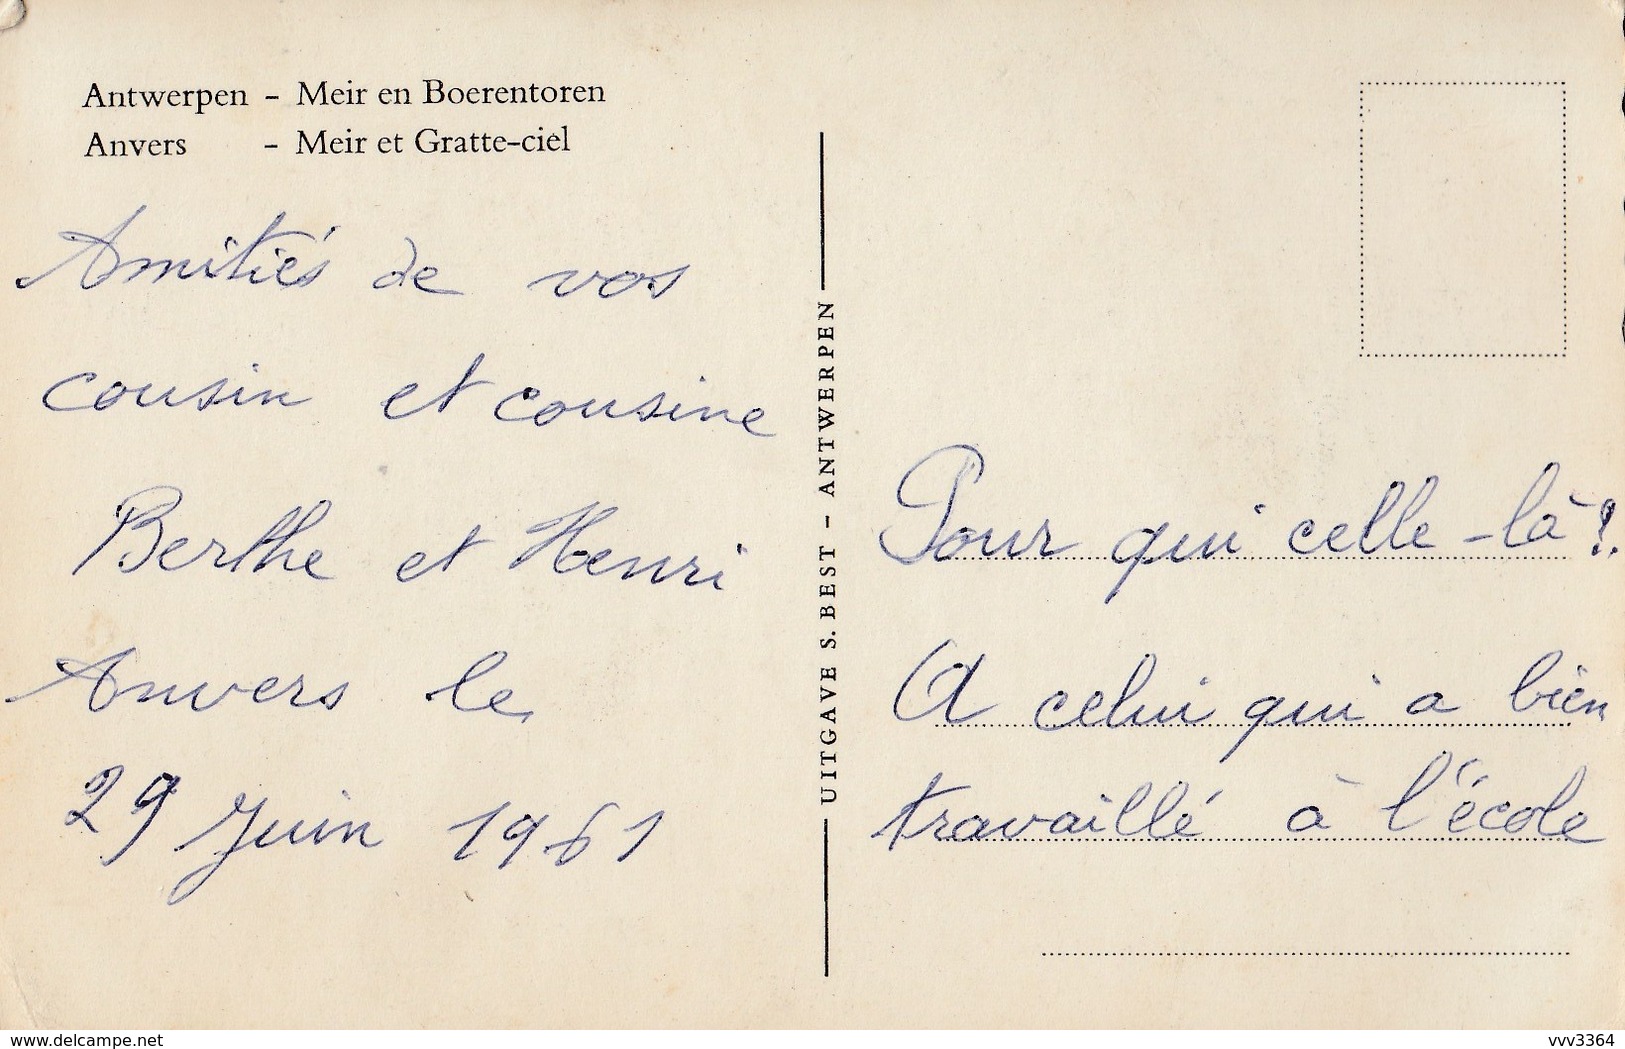 Antwerpen - Meir en Boerentoren
Anvers - Meir et Gratte-ciel
Amitiés de vos
cousin et cousine
Berthe et Henri
Anvers le
29 Juin 1961
UITGAVE S. BEST - ANTWERPEN
Pour qui celle-là?
A celui qui a bien
travaillé à l'école
www.delcampe.net
vvv3364